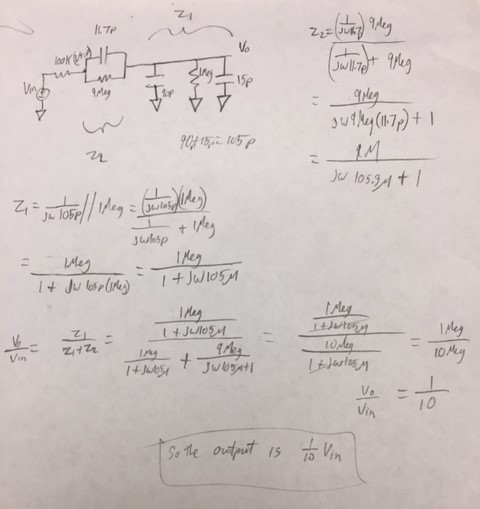 Z₁
11.7p
Vo
Vin
9Meg
90p
1Meg
15p
Z₂
90p+15p=105p
Z₂= (1/jω11.7p) 9Meg / ((1/jω11.7p) + 9Meg)
= 9Meg / (jω9Meg(11.7p) + 1)
= 9M / (jω 105.3μ + 1)
Z₁ = 1/jω105p // 1Meg = (1/jω105p)(1Meg) / (1/jω105p + 1Meg)
= 1Meg / (1 + jω105p(1Meg)) = 1Meg / (1 + jω105μ)
Vo/Vin = Z₁/(Z₁+Z₂) = (1Meg/(1+jω105μ)) / (1Meg/(1+jω105μ) + 9Meg/(jω105μ+1)) = (1Meg/(1+jω105μ)) / (10Meg/(1+jω105μ)) = 1Meg/10Meg
Vo/Vin = 1/10
So the output is 1/10 Vin